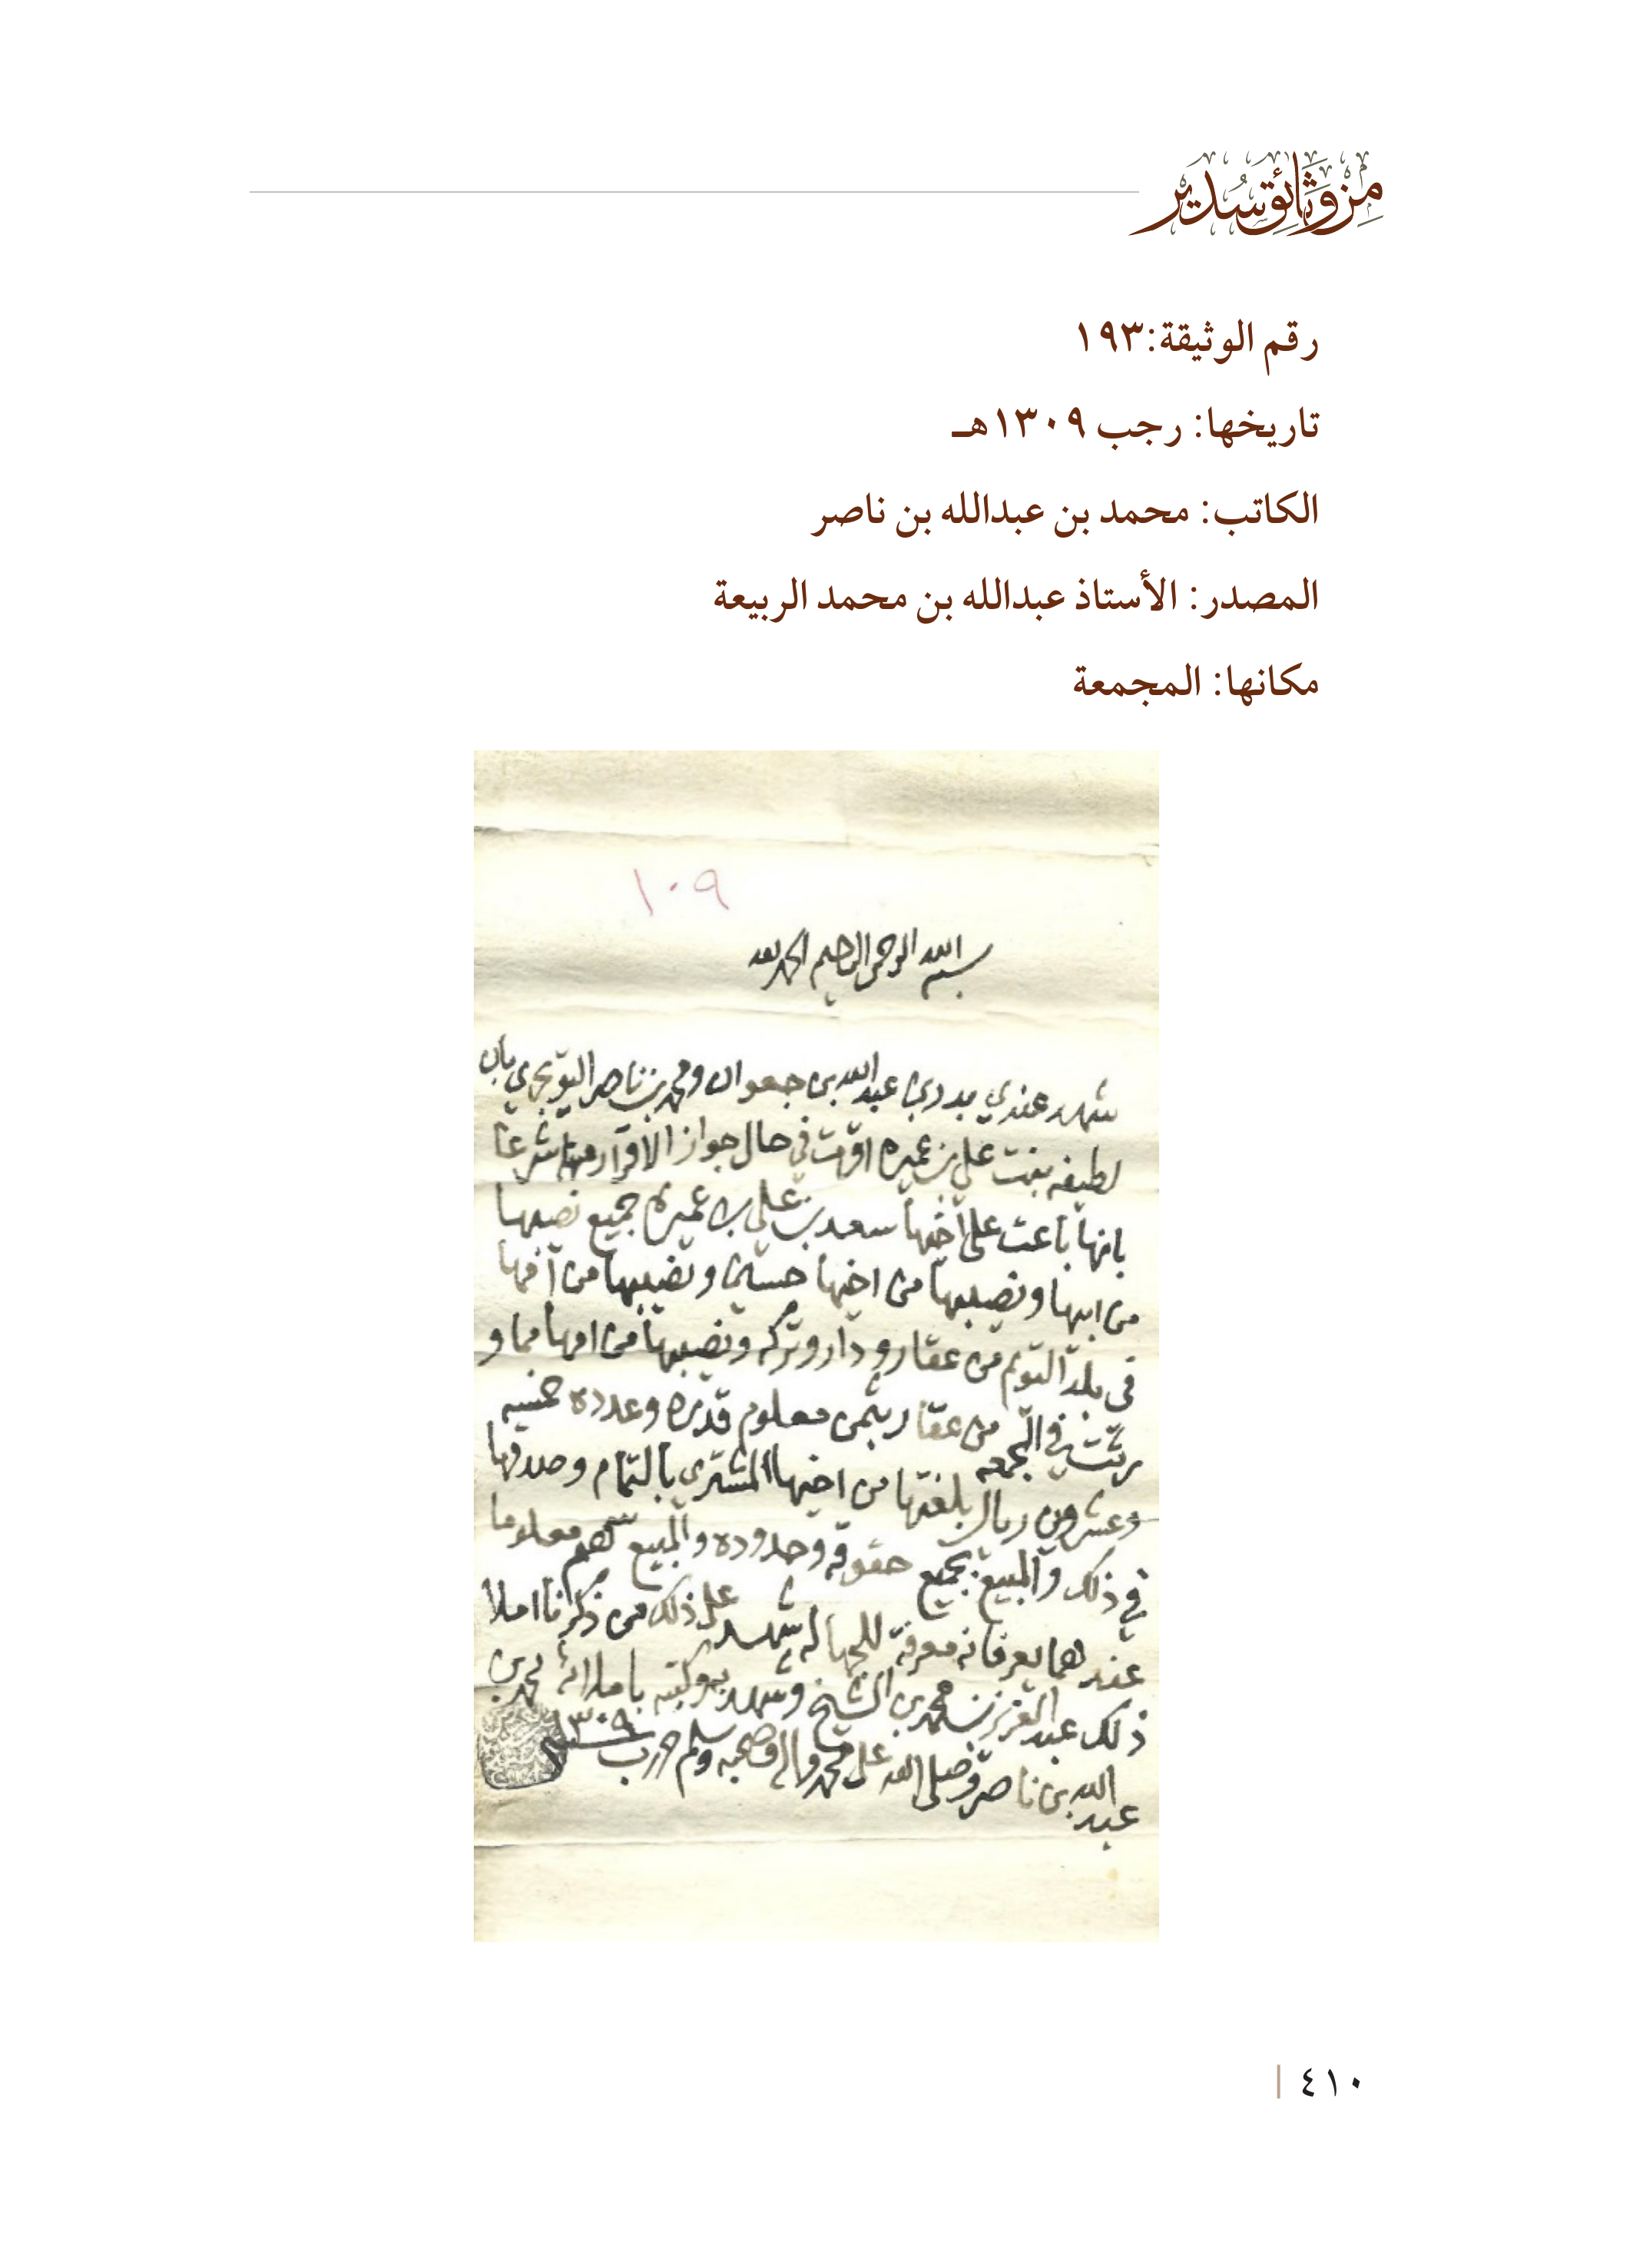 من وثائق سدير
رقم الوثيقة: ١٩٣
تاريخها: رجب ١٣٠٩هـ
الكاتب: محمد بن عبدالله بن ناصر
المصدر: الأستاذ عبدالله بن محمد الربيعة
مكانها: المجمعة
١٠٩
بسم الله الرحمن الرحيم الحمد لله
شهد عندي عبدالله بن جعوان ومحمد بن ناصر التويجري بان
لطيفه بنت علي بن عميره اقرت في حال جواز الاقرار منها شرعا
بانها باعت على اخيها سعد بن علي بن عميره جميع نصيبها
من ابيها ونصيبها من اخيها حسين ونصيبها من
في بلد التويم من عقار ودار وتركه ونصيبها من امها مما و
رثت في المجمعه من عقار بثمن معلوم قدره وعدده خمسه
وعشرون ريال بلغتها من اخيها المشتري بالتمام وصدقها
في ذلك والمبيع بجميع حقوقه وحدوده والمبيع معلوما
عندهما يعرفانه معرفة للجهاله شهد على ذلك من ذكرنا املا
ذلك عبدالعزيز بن محمد بن الشيخ وشهد به وكتبه باملائه محمد بن
عبدالله بن ناصر وصلى الله على محمد واله وصحبه وسلم ١٣٠٩
٤١٠